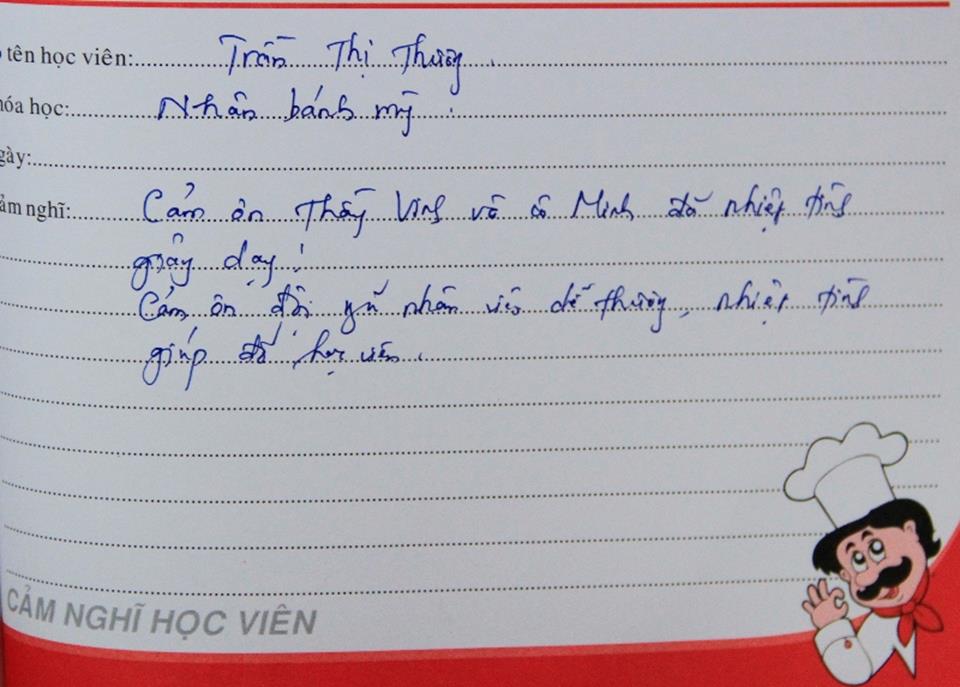 tên học viên: Trần Thị Thương.
hóa học: Nhân bánh mỳ.
gày:
ảm nghĩ: Cảm ơn Thầy Vinh và cô Minh đã nhiệt tình
giảy dạy!
Cảm ơn đội ngũ nhân viên dễ thương, nhiệt tình
giúp đỡ học viên.
CẢM NGHĨ HỌC VIÊN